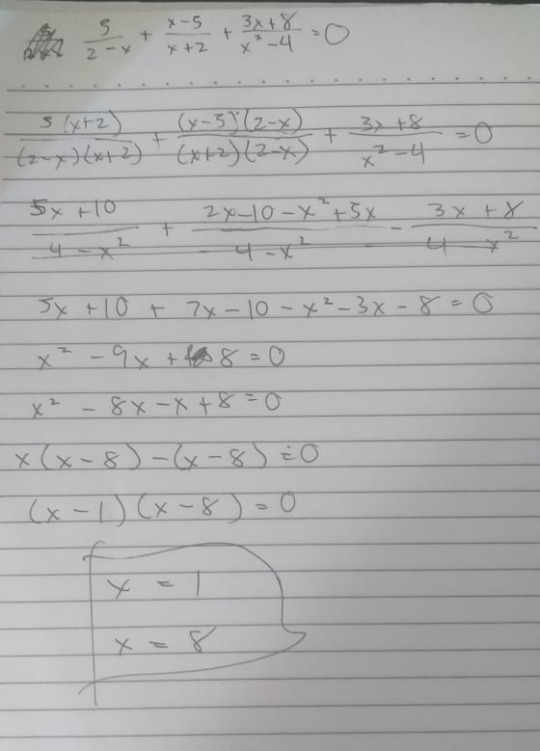 5/(2-x) + (x-5)/(x+2) + (3x+8)/(x²-4) = 0
5(x+2)/((2-x)(x+2)) + (x-5)(2-x)/((x+2)(2-x)) + (3x+8)/(x²-4) = 0
(5x+10)/(4-x²) + (2x-10-x²+5x)/(4-x²) - (3x+8)/(4-x²)
5x+10 + 7x-10-x²-3x-8=0
x² - 9x + 8 = 0
x² - 8x-x+8=0
x(x-8)-(x-8)=0
(x-1)(x-8)=0
x = 1
x = 8